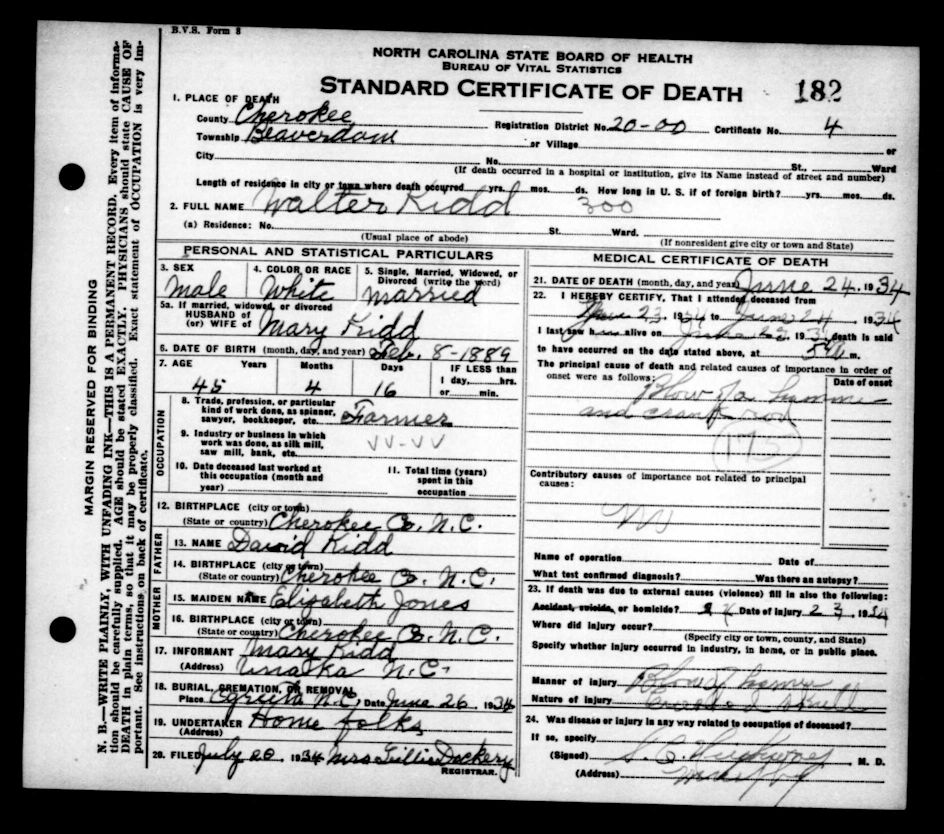 B.V.S. Form 8
NORTH CAROLINA STATE BOARD OF HEALTH
BUREAU OF VITAL STATISTICS
STANDARD CERTIFICATE OF DEATH 182
1. PLACE OF DEATH
County Cherokee Registration District No. 20-00 Certificate No. 4
Township Beaverdam or Village or
City No. St., Ward
(If death occurred in a hospital or institution, give its Name instead of street and number)
Length of residence in city or town where death occurred yrs. mos. ds. How long in U. S. if of foreign birth? yrs. mos. ds.
2. FULL NAME Walter Kidd 300
(a) Residence: No. St. Ward.
(Usual place of abode) (If nonresident give city or town and State)
PERSONAL AND STATISTICAL PARTICULARS
3. SEX 4. COLOR OR RACE 5. Single, Married, Widowed, or Divorced (write the word)
Male White married
5a. If married, widowed, or divorced
HUSBAND of
(or) WIFE of Mary Kidd
6. DATE OF BIRTH (month, day, and year) Feb. 8-1889
7. AGE Years Months Days IF LESS than
1 day, hrs.
45 4 16 or min.
OCCUPATION
8. Trade, profession, or particular
kind of work done, as spinner,
sawyer, bookkeeper, etc. Farmer
9. Industry or business in which
work was done, as silk mill,
saw mill, bank, etc. VV-VV
10. Date deceased last worked at
this occupation (month and
year)
11. Total time (years)
spent in this
occupation
12. BIRTHPLACE (city or town)
(State or country) Cherokee Co. N.C.
FATHER
13. NAME David Kidd
14. BIRTHPLACE (city or town)
(State or country) Cherokee Co. N.C.
MOTHER
15. MAIDEN NAME Elizabeth Jones
16. BIRTHPLACE (city or town)
(State or country) Cherokee Co. N.C.
17. INFORMANT Mary Kidd
(Address) Unaka N.C.
18. BURIAL, CREMATION, OR REMOVAL
Place N.C. Date June 26, 1934
19. UNDERTAKER Home folks
(Address)
20. FILED July 20 1934 Mrs Dockery
REGISTRAR.
MEDICAL CERTIFICATE OF DEATH
21. DATE OF DEATH (month, day, and year) June 24, 1934
22. I HEREBY CERTIFY, That I attended deceased from
23, 1934 to June 24, 1934
I last saw h alive on 1934 death is said
to have occurred on the date stated above, at m.
The principal cause of death and related causes of importance in order of
onset were as follows: Date of onset
Blow of a
and crank rod
Contributory causes of importance not related to principal
causes:
Name of operation Date of
What test confirmed diagnosis? Was there an autopsy?
23. If death was due to external causes (violence) fill in also the following:
Accident, suicide, or homicide? Date of injury 23, 1934
Where did injury occur?
(Specify city or town, county, and State)
Specify whether injury occurred in industry, in home, or in public place.
Manner of injury Blow of
Nature of injury Skull
24. Was disease or injury in any way related to occupation of deceased?
If so, specify
(Signed) M. D.
(Address)
MARGIN RESERVED FOR BINDING
N. B.—WRITE PLAINLY, WITH UNFADING INK—THIS IS A PERMANENT RECORD. Every item of informa-
tion should be carefully supplied. AGE should be stated EXACTLY. PHYSICIANS should state CAUSE OF
DEATH in plain terms, so that it may be properly classified. Exact statement of OCCUPATION is very im-
portant. See instructions on back of certificate.